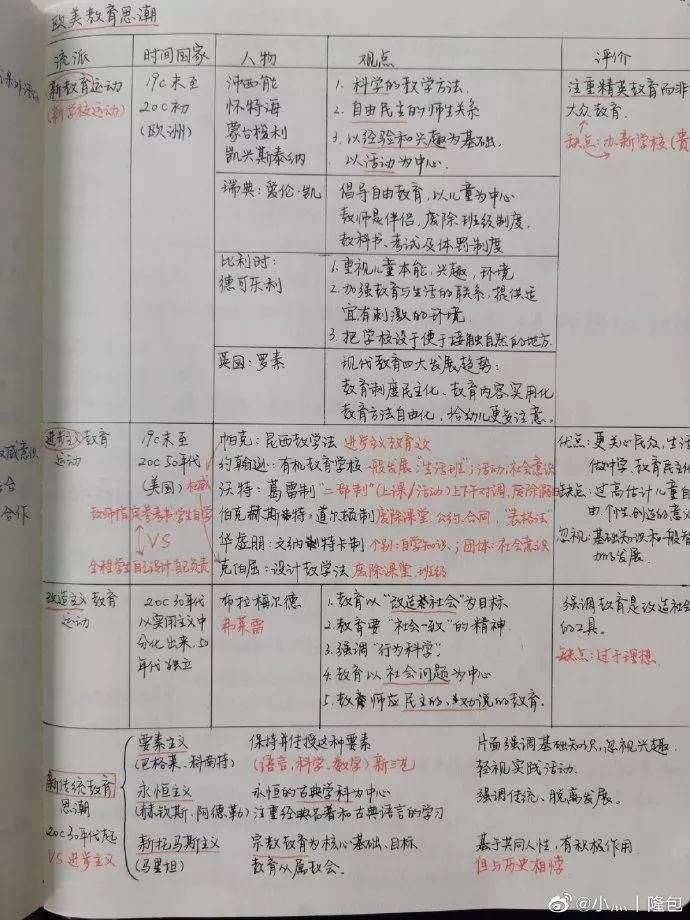 欧美教育思潮
流派 时间国家 人物 观点 评价
新教育运动
(新学校运动)
19c末至
20c初
(欧洲)
沛西能
怀特海
蒙台梭利
凯兴斯泰纳
1. 科学的教学方法.
2. 自由民主的师生关系
3. 以经验和兴趣为基础,
以活动为中心.
注重精英教育而非
大众教育.
缺点: 办新学校(贵
瑞典: 爱伦·凯
倡导自由教育, 以儿童为中心
教师是伴侣, 废除班级制度,
教科书、考试及体罚制度
比利时:
德可乐利
1. 重视儿童本能, 兴趣, 环境
2. 加强教育与生活的联系, 提供适
宜有刺激的环境.
3. 把学校设于便于接触自然的地方.
英国: 罗素
现代教育四大发展趋势:
教育制度民主化、教育内容实用化
教育方法自由化、给幼儿更多注意.
进步主义教育
运动
19c末至
20c 50年代
(美国)
教师指定参考书 学生自学
VS
全程学生自己设计.自己负责
帕克: 昆西教学法 进步主义教育之父
约翰逊: 有机教育学校 一般发展:"生活班"; 活动, 社会意识
沃特: 葛雷制 "二部制"(上课/活动)上下午对调, 废除假日
伯克赫斯特, 道尔顿制 废除课堂. 公约. 合同, "表格法"
华虚朋: 文纳特卡制 个别: 自学知识.; 团体: 社会意识
克伯屈: 设计教学法 废除课堂. 班级
优点: 更关心民众, 生活
做中学, 教育民主化
缺点: 过高估计儿童自
由, 个性, 创造的意义
忽视: 基础知识和一般智
力的发展.
权威意识
合
合作
改造主义教育
运动
20c 30年代
以实用主义中
分化出来, 50
年代独立
布拉梅尔德
弗莱雷
1. 教育以"改造社会"为目标
2. 教育要"社会一致"的精神.
3. 强调"行为科学".
4. 教育以社会问题为中心
5. 教师应民主的、劝说的教育.
强调教育是改造社会
的工具.
缺点: 过于理想.
新传统教育
思潮
20c 30年代起
VS 进步主义
要素主义 保持并传授这种要素
(巴格莱、科南特) (语言, 科学、数学)新三艺
片面强调基础知识, 忽视兴趣.
轻视实践活动.
永恒主义 永恒的古典学科为中心
(赫钦斯、阿德勒) 注重经典名著和古典语言的学习
强调传统、脱离发展.
新托马斯主义 宗教教育为核心基础、目标
(马里坦) 教育从属教会.
基于共同人性, 有积极作用
但与历史相悖